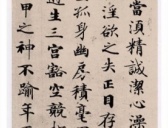 當須精誠潔心澡
淫欲之失正目存
孤身幽房積襄
近生三宫豁空競於
甲之神不踰年